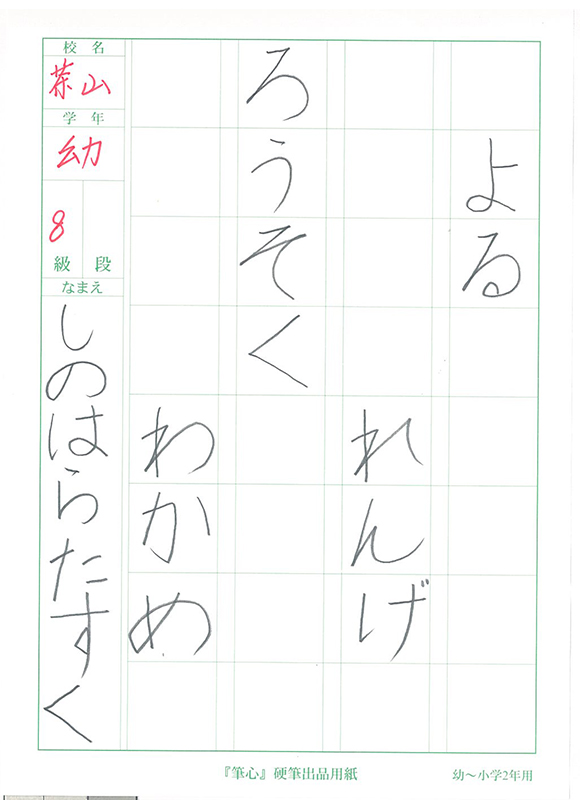 よる
れんげ
ろうそく
わかめ
校名
茶山
学年
幼
8
級 段
なまえ
しのはらたすく
『筆心』硬筆出品用紙
幼～小学2年用